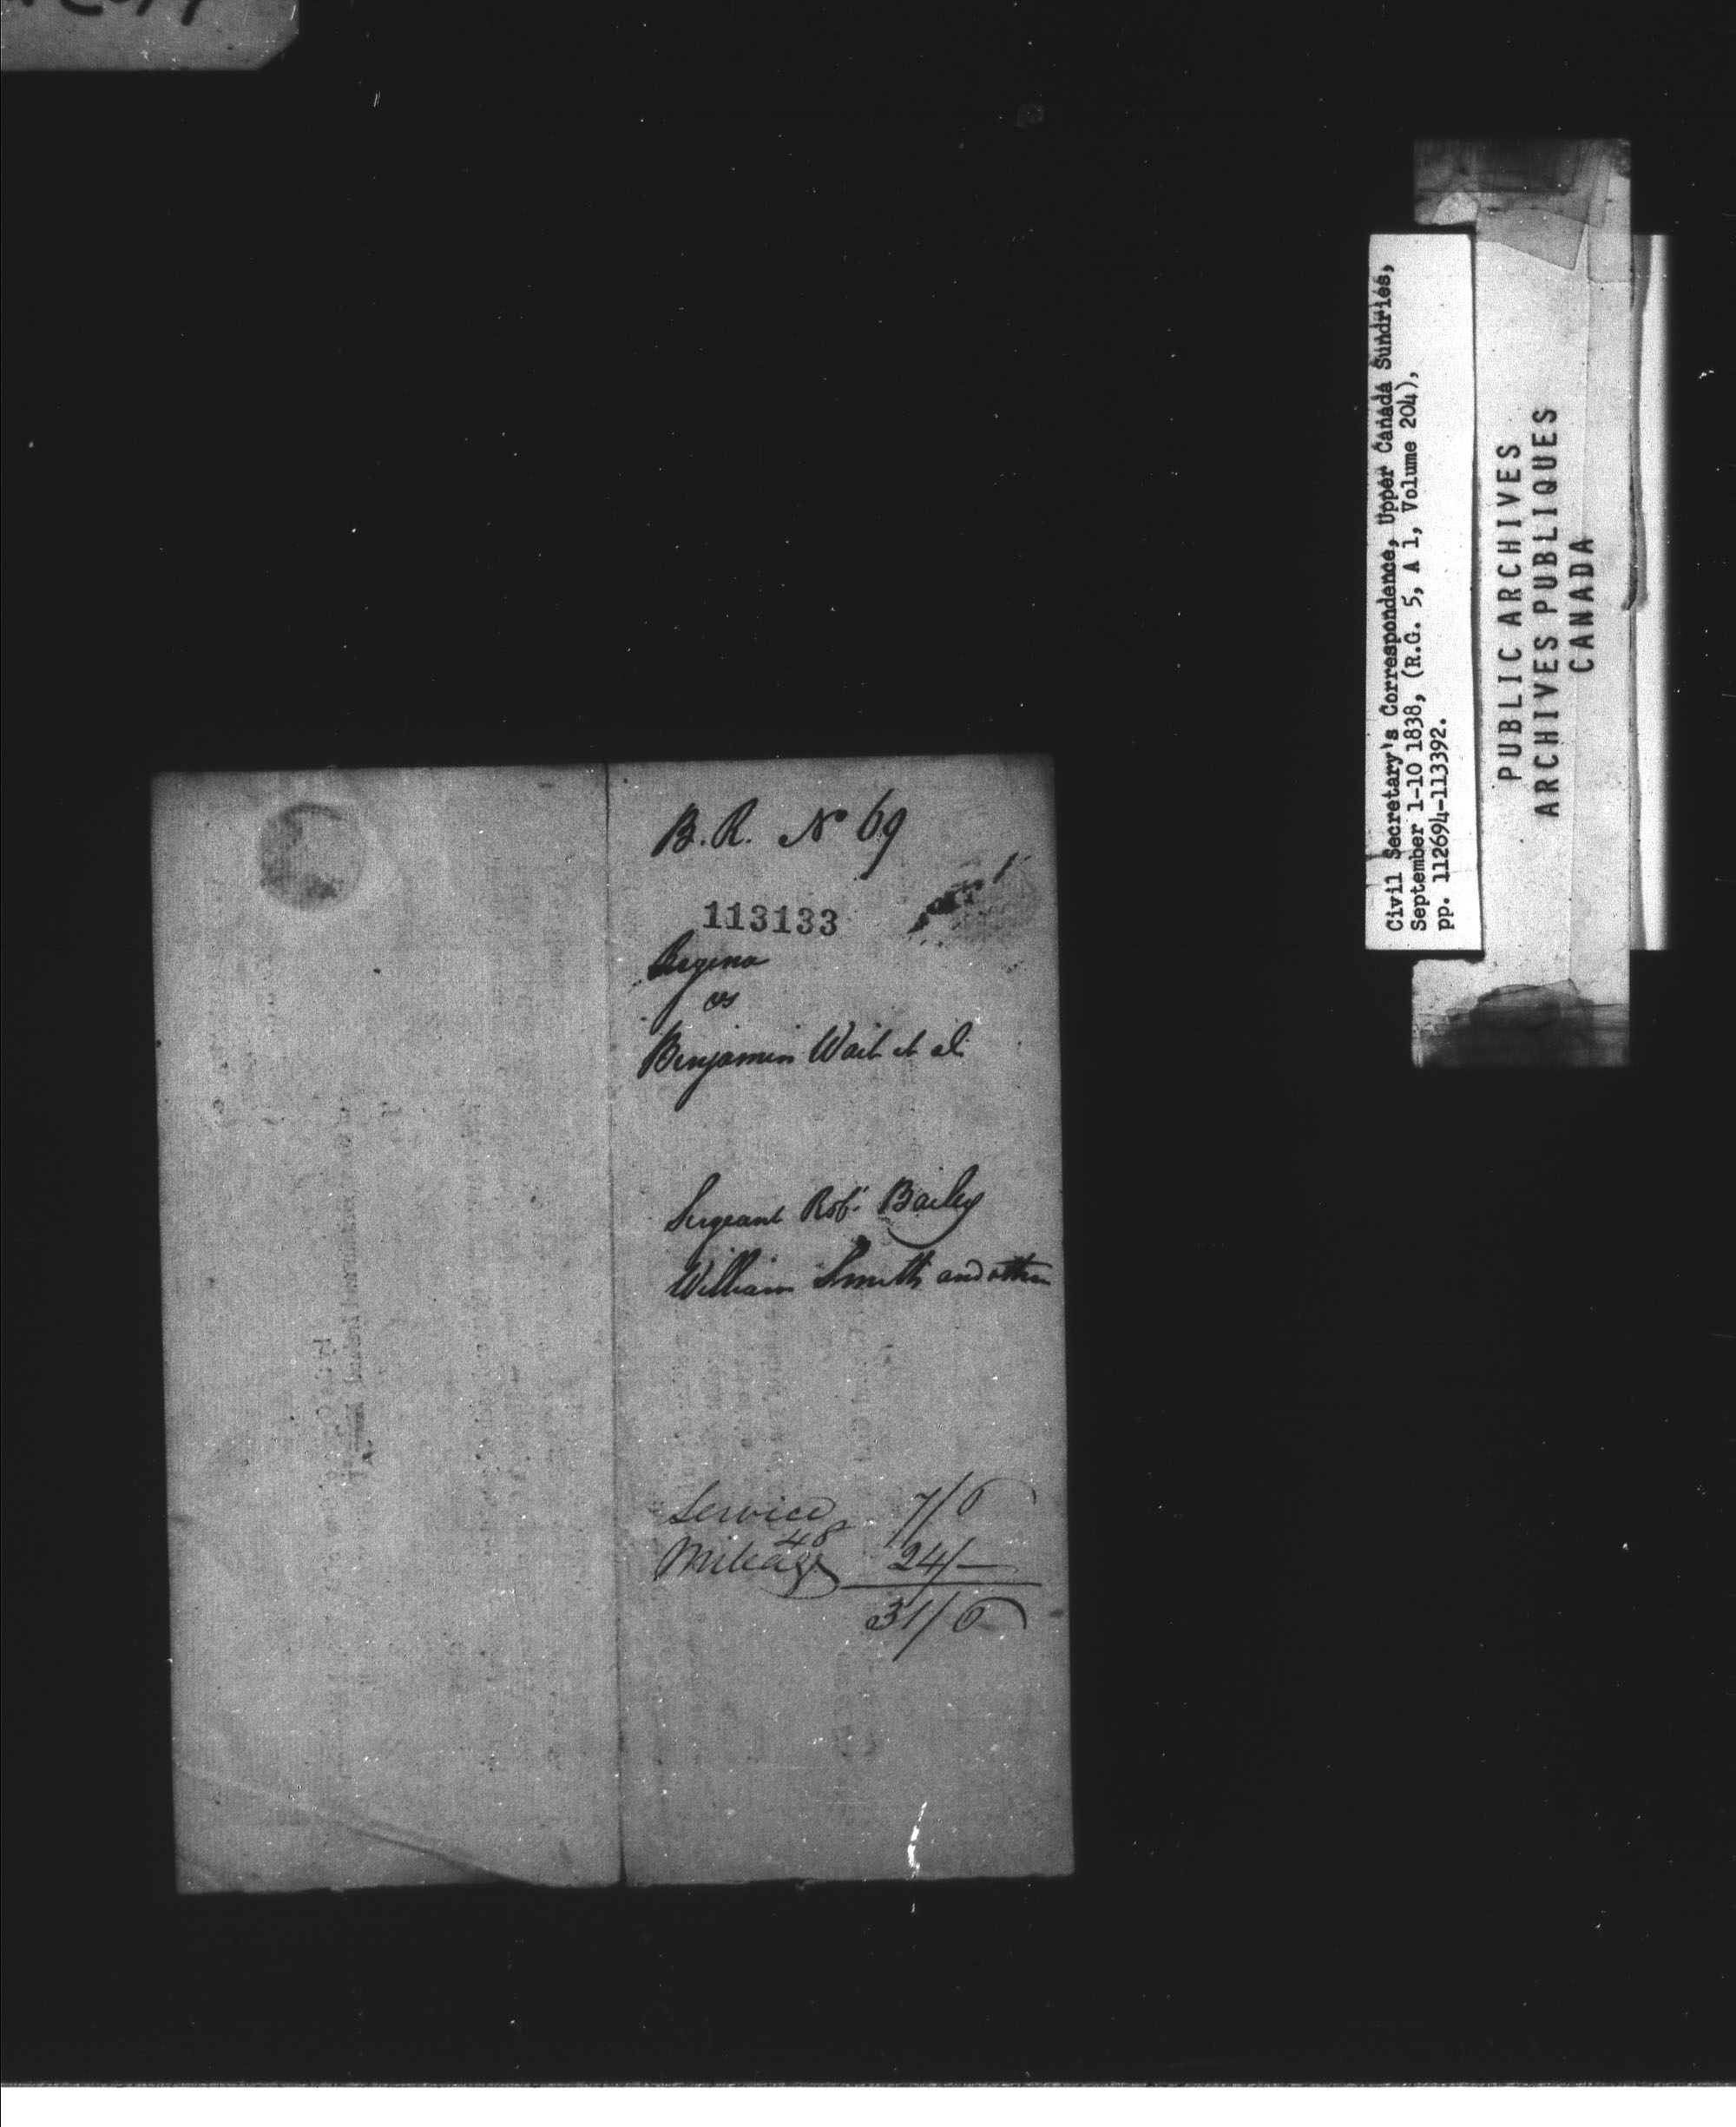 B.R. No 69
113133
Regina
vs
Benjamin Wait et al
Sergeant Robt. Bailey
William Smith and others
Service 7/6
48
Mileage 24/–
31/6
Civil Secretary's Correspondence, Upper Canada Sundries,
September 1-10 1838, (R.G. 5, A 1, Volume 204),
pp. 112694-113392.
PUBLIC ARCHIVES
ARCHIVES PUBLIQUES
CANADA